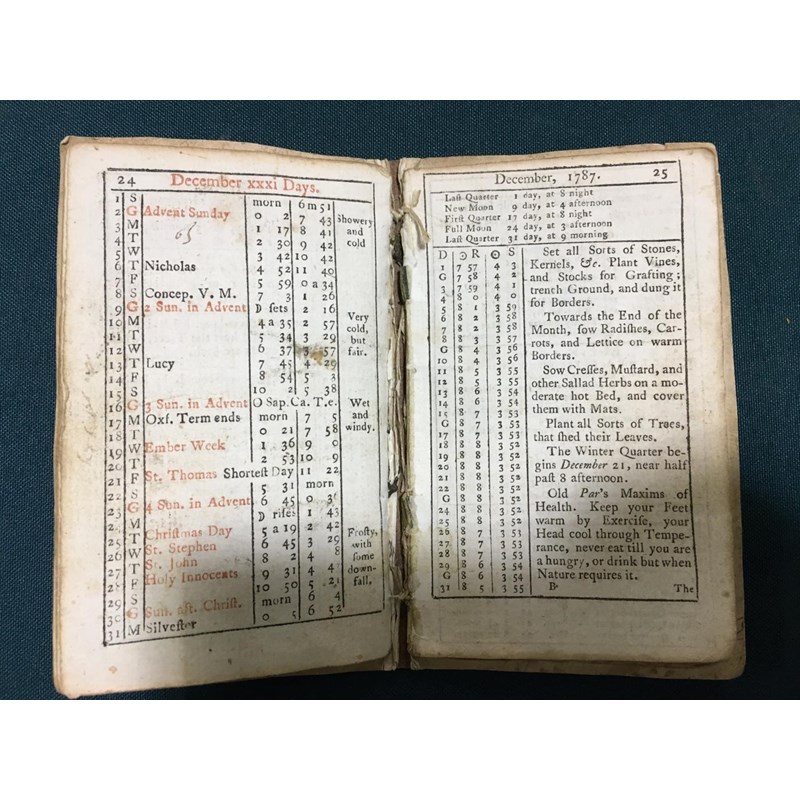 24 December xxxi Days.
1 S morn 6 m 51
2 G Advent Sunday 0 2 7 43 Showery
3 M 1 17 8 41 and
65
4 T 2 30 9 42 cold
5 W 3 42 10 42
6 T Nicholas 4 52 11 40
7 F 5 59 0 a 34
8 S Concep. V. M. 7 3 1 26
9 G 2 Sun. in Advent D sets 2 16
10 M 4 a 35 2 57 Very
11 T 5 34 3 29 cold,
12 W 6 37 3 57 but
13 T Lucy 7 45 4 29 fair.
14 F 8 54 5 3
15 S 10 2 5 38
16 G 3 Sun. in Advent O Sap. Ca. T. e. Wet
17 M Oxf. Term ends morn 7 5 and
18 T 0 21 7 58 windy.
19 W Ember Week 1 36 9 0
20 T 2 53 10 9
21 F St. Thomas Shortest Day 11 22
22 S 5 31 morn
23 G 4 Sun. in Advent 6 45 0
24 M D rises 1 43
25 T Christmas Day 5 a 19 2 42
26 W St. Stephen 6 45 3 29 Frosty,
27 T St. John 8 2 4 8 with
28 F Holy Innocents 9 31 4 some
29 S 10 50 5 21 down-
30 G Sun. aft. Christ. morn 6 4 fall.
31 M Silvester 0 5 6 52
December, 1787. 25
Last Quarter 1 day, at 8 night
New Moon 9 day, at 4 afternoon
First Quarter 17 day, at 8 night
Full Moon 24 day, at 3 afternoon
Last Quarter 31 day, at 9 morning
D ☉ R ☉ S
1 7 57 4 3
G 7 58 4 2
3 7 59 4 1
4 8 0 4 0
5 8 1 3 59
6 8 2 3 58
7 8 2 3 58
8 8 3 3 57
G 8 4 3 56
10 8 4 3 56
11 8 5 3 55
12 8 5 3 55
13 8 6 3 54
14 8 6 3 54
15 8 7 3 53
G 8 7 3 53
17 8 7 3 53
18 8 8 3 52
19 8 8 3 52
20 8 8 3 52
21 8 8 3 52
22 8 8 3 52
G 8 8 3 52
24 8 8 3 52
25 8 8 3 52
26 8 7 3 53
27 8 7 3 53
28 8 7 3 53
29 8 6 3 54
G 8 6 3 54
31 8 5 3 55
Set all Sorts of Stones,
Kernels, &c. Plant Vines,
and Stocks for Grafting;
trench Ground, and dung it
for Borders.
Towards the End of the
Month, sow Radishes, Car-
rots, and Lettice on warm
Borders.
Sow Cresses, Mustard, and
other Sallad Herbs on a mo-
derate hot Bed, and cover
them with Mats.
Plant all Sorts of Trees,
that shed their Leaves.
The Winter Quarter be-
gins December 21, near half
past 8 afternoon.
Old Par's Maxims of
Health. Keep your Feet
warm by Exercise, your
Head cool through Tempe-
rance, never eat till you are
a hungry, or drink but when
Nature requires it.
B The